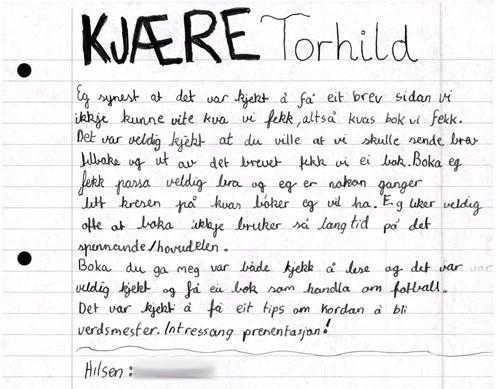 KJÆRE Torhild
Eg synest at det var kjekt å få eit brev sidan vi
ikkje kunne vite kva vi fekk, altså kvas bok vi fekk.
Det var veldig kjekt at du ville at vi skulle sende brev
tilbake og ut av det brevet fekk vi ei bok. Boka eg
fekk passa veldig bra og eg er nokon ganger
litt kresen på kvas bøker eg vil ha. Eg liker veldig
ofte at boka ikkje bruker så lang tid på det
spennande/hovudelen.
Boka du ga meg var både kjekk å lese og det var var
veldig kjekt og få ei bok som handla om fotball.
Det var kjekt å få eit tips om kordan å bli
verdsmester. Intressang prenentasjon!
Hilsen: